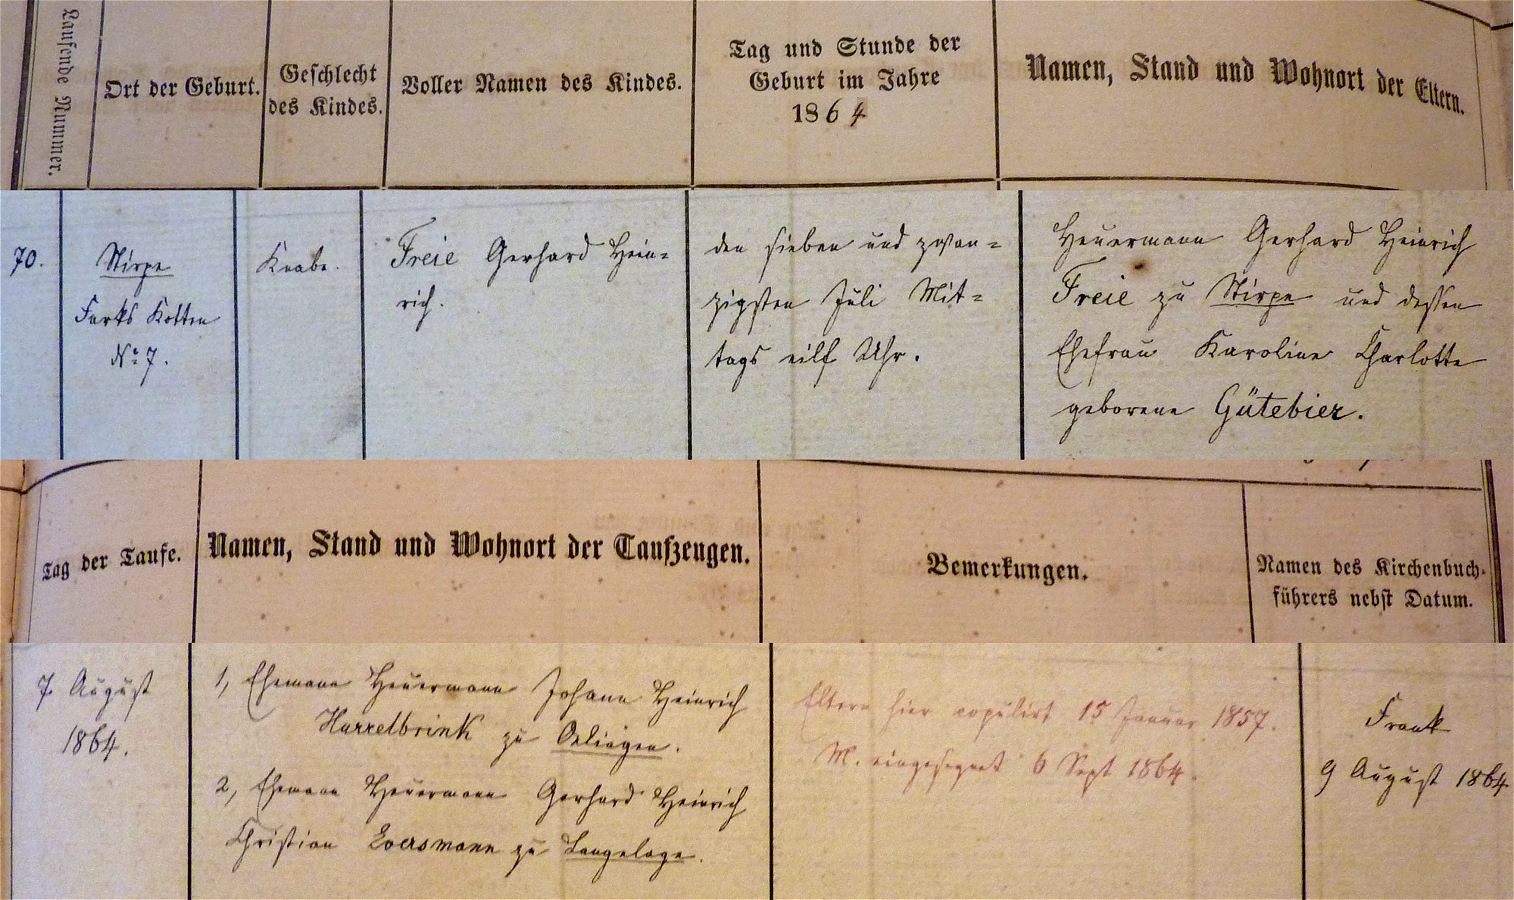 Laufende Nummer.
Ort der Geburt.
Geschlecht
des Kindes.
Voller Namen des Kindes.
Tag und Stunde der
Geburt im Jahre
1864
Namen, Stand und Wohnort der Eltern.
70.
Stirpe
Farks Kotten
No 7.
Knabe.
Freie Gerhard Hein=
rich.
den sieben und zwan=
zigsten Juli Mit=
tags eilf Uhr.
Heuermann Gerhard Heinrich
Freie zu Stirpe und dessen
Ehefrau Karoline Charlotte
geborene Gütebier.
Tag der Taufe.
Namen, Stand und Wohnort der Taufzeugen.
Bemerkungen.
Namen des Kirchenbuch-
führers nebst Datum.
7. August
1864.
1, Ehemann Heuermann Johann Heinrich
Harrelbrink zu Oelingen.
2, Ehemann Heuermann Gerhard Heinrich
Christian Eversmann zu Langelage.
Eltern hier copulirt 15 Januar 1857.
M. eingesegnet 6 Sept 1864.
Frank
9 August 1864